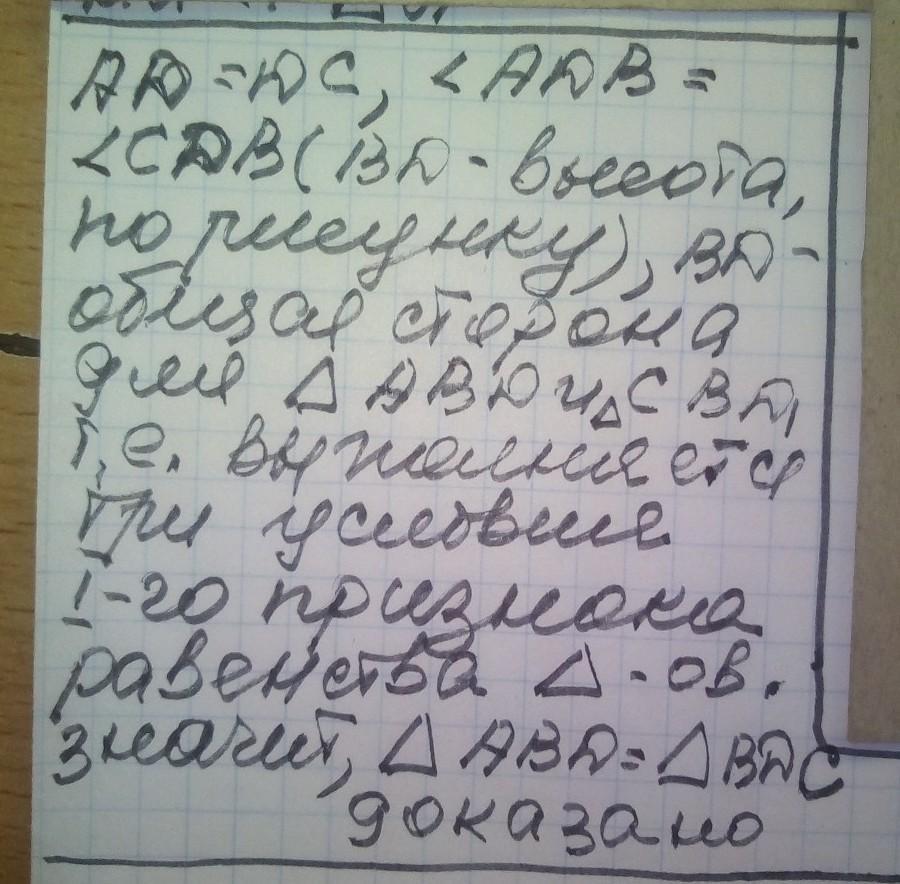 AD = DC, ∠ADB =
∠CDB (BD - высота,
по рисунку), BD -
общая сторона
для △ ABD и △ CBD,
т.е. выполняется
три условия
I-го признака
равенства △-ов.
значит, △ ABD = △ BDC
доказано